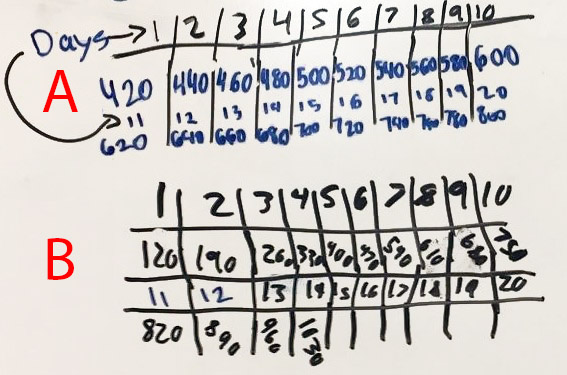 Days → 1 2 3 4 5 6 7 8 9 10
A
420 440 460 480 500 520 540 560 580 600
11 12 13 14 15 16 17 18 19 20
620 640 660 680 700 720 740 760 780 800
B
1 2 3 4 5 6 7 8 9 10
120 190 260 330 400
11 12 13 14 15 16 17 18 19 20
820 890 960